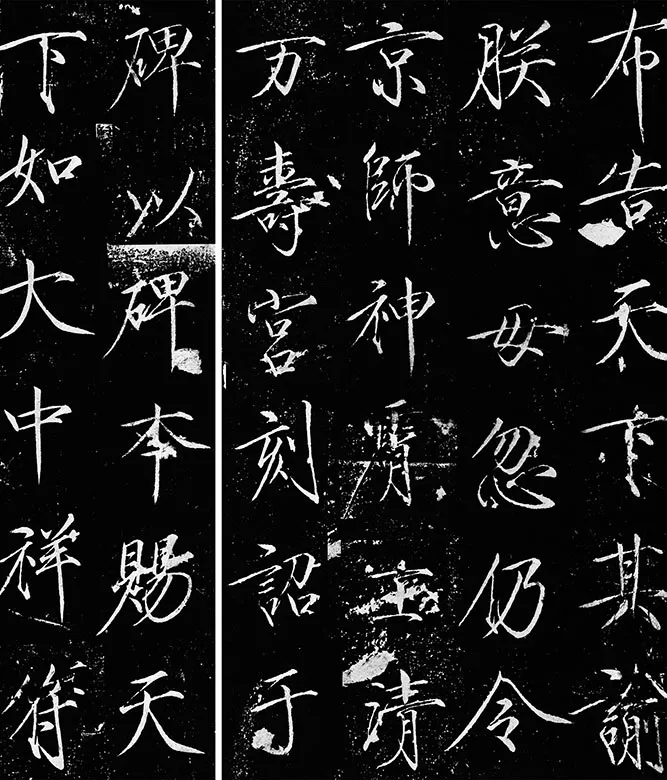 布告天下其諭
朕意毋忽仍令
京師神霄玉清
万壽宮刻詔于
碑以碑本賜天
下如大中祥符